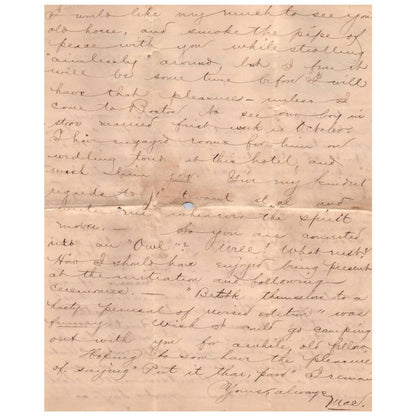 I would like very much to see you
old horse, and smoke the pipe of
peace with you while strolling
"aimlessly" around, but I fear it
will be some time before I will
have that pleasure — unless I
come to Boston to see our boy in
store married first week in October.
I have engaged rooms for him on
wedding tour at this hotel, and
wish him joy. Give my kindest
regards to and
write me whenever the spirit
moves. — So you are converted
into an "Owl"? Well! What next?
How I should have enjoyed being present
at the initiation and following
ceremonies. — "Betook themselves to a
hasty perusal of revised edition" was
funny. Wish I could go camping
out with you for awhile, old fellow.
Hoping to soon have the pleasure
of saying "Put it thar, pard" I remain
Yours, always,
Mac.